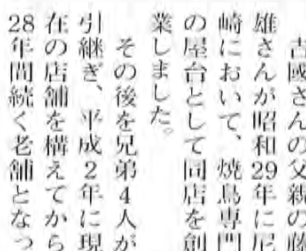 吉國さんの父親の
雄さんが昭和29年に尼
崎において、焼鳥専門
の屋台として同店を創
業しました。
その後を兄弟4人が
引継ぎ、平成2年に現
在の店舗を構えてから
28年間続く老舗となっ